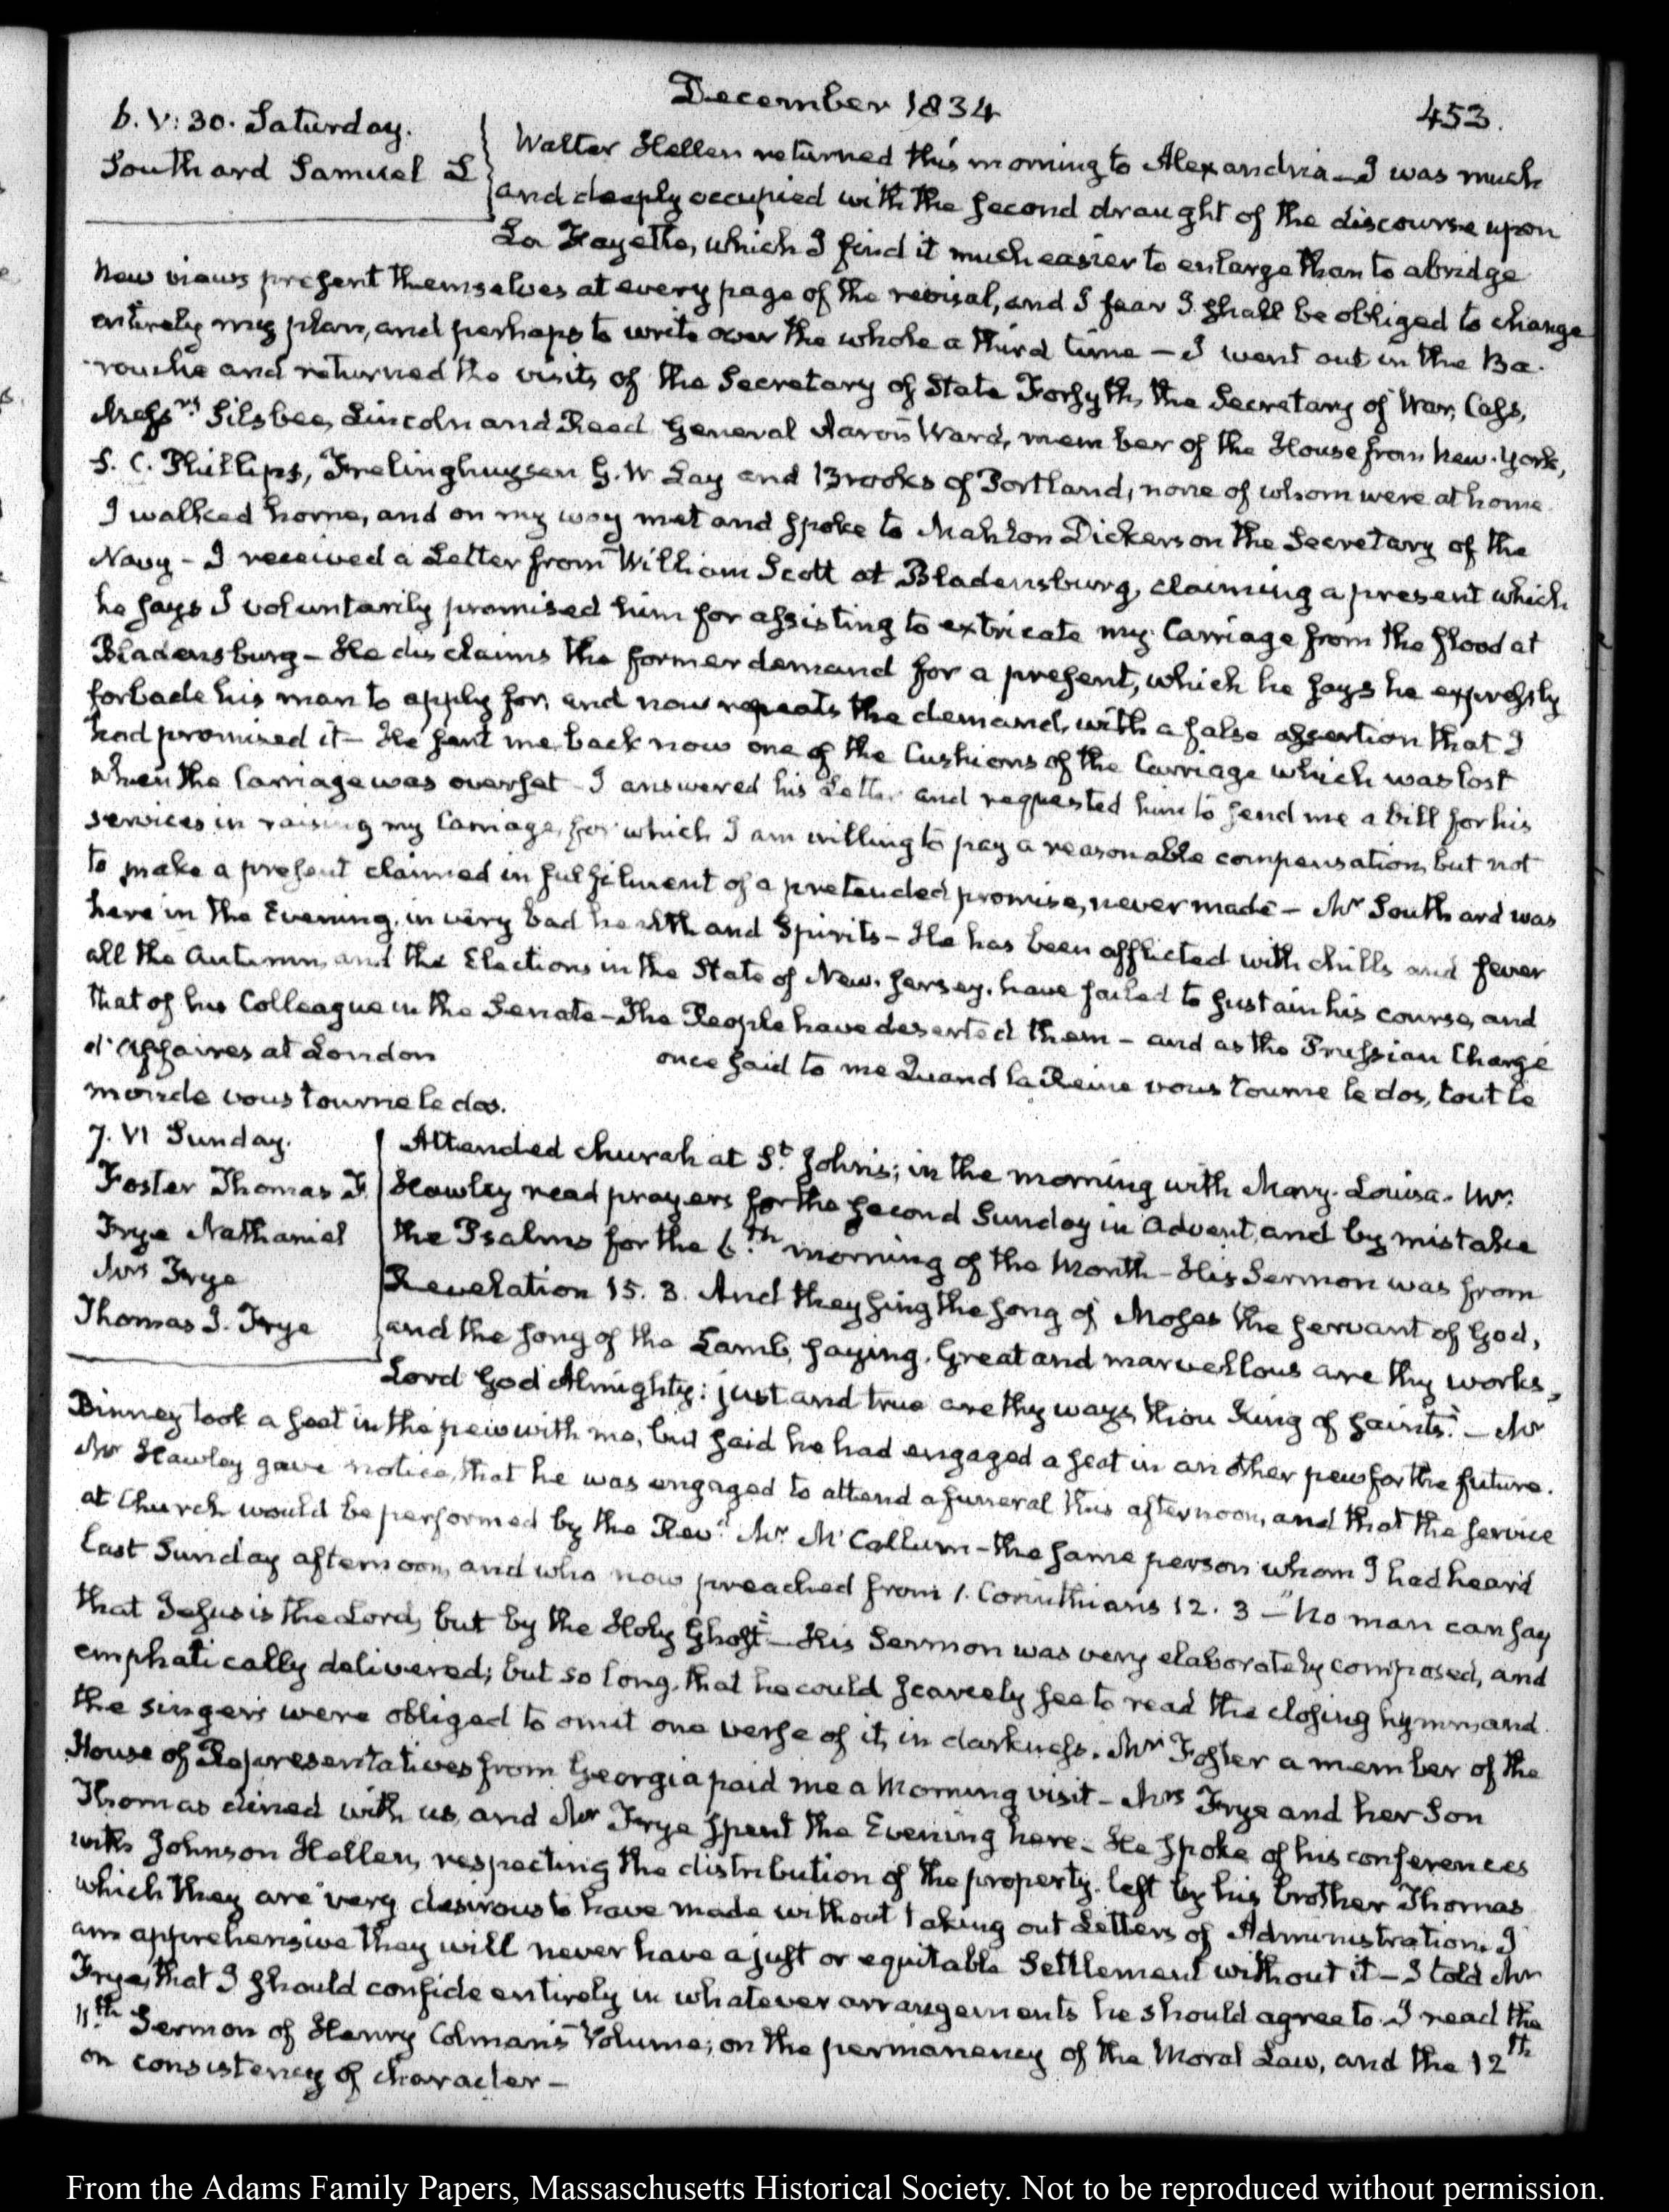 December 1834
453.
6. V: 30. Saturday.
Southard Samuel L
Walter Hellen returned this morning to Alexandria — I was much
and deeply occupied with the second draught of the discourse upon
La Fayette, which I find it much easier to enlarge than to abridge
New views present themselves at every page of the revisal, and I fear I shall be obliged to change
entirely my plan, and perhaps to write over the whole a third time — I went out in the Ba-
-rouche and returned the visits of the Secretary of State Forsyth, the Secretary of War, Cass,
Messrs. Silsbee, Lincoln and Reed General Aaron Ward, member of the House from New-York,
S. C. Phillips, Frelinghuysen G. W Lay and Brooks of Portland, none of whom were at home
I walked home, and on my way met and spoke to Mahlon Dickerson the Secretary of the
Navy — I received a Letter from William Scott at Bladensburg, claiming a present which
he says I voluntarily promised him for assisting to extricate my Carriage from the flood at
Bladensburg — He disclaims the former demand for a present, which he says he expressly
forbade his man to apply for, and now repeats the demand, with a false assertion that I
had promised it — He sent me back now one of the Cushions of the Carriage which was lost
when the Carriage was overset — I answered his Letter and requested him to send me a bill for his
services in raising my Carriage, for which I am willing to pay a reasonable compensation, but not
to make a present claimed in fulfilment of a pretended promise, never made — Mr Southard was
here in the Evening, in very bad health and Spirits — He has been afflicted with chills and fever
all the Autumn, and the Elections in the State of New-Jersey, have failed to sustain his course, and
that of his Colleague in the Senate — The People have deserted them — and as the Prussian Chargé
d'Affaires at London once said to me Quand la Reine vous tourne le dos, tout le
monde vous tourne le dos.
7. VI Sunday.
Foster Thomas F
Frye Nathaniel
Mrs Frye
Thomas J. Frye
Attended church at St. John's; in the morning with Mary-Louisa. Mr.
Hawley read prayers for the second Sunday in Advent, and by mistake
the Psalms for the 6.th morning of the Month — His Sermon was from
Revelation 15. 3. And they sing the song of Moses the servant of God,
and the song of the Lamb, saying. Great and marvellous are thy works,
Lord God Almighty: just and true are thy ways, thou King of saints." — Mr
Binney took a seat in the pew with me, but said he had engaged a seat in another pew for the future.
Mr Hawley gave notice, that he was engaged to attend a funeral this afternoon, and that the service
at Church would be performed by the Revd. Mr. McCallum — the same person whom I had heard
last Sunday afternoon, and who now preached from 1. Corinthians 12. 3 — "No man can say
that Jesus is the Lord, but by the Holy Ghost" — His Sermon was very elaborately composed, and
emphatically delivered; but so long, that he could scarcely see to read the closing hymn, and
the singers were obliged to omit one verse of it, in darkness. Mr Foster a member of the
House of Representatives from Georgia paid me a Morning visit — Mrs Frye and her Son
Thomas dined with us, and Mr Frye spent the Evening here — He spoke of his conferences
with Johnson Hellen, respecting the distribution of the property left by his brother Thomas
which they are very desirous to have made without taking out Letters of Administration. I
am apprehensive they will never have a just or equitable Settlement without it — I told Mr
Frye, that I should confide entirely in whatever arrangements he should agree to. I read the
11.th Sermon of Henry Colman's Volume; on the permanency of the Moral Law, and the 12th
on consistency of character —
From the Adams Family Papers, Massaschusetts Historical Society. Not to be reproduced without permission.